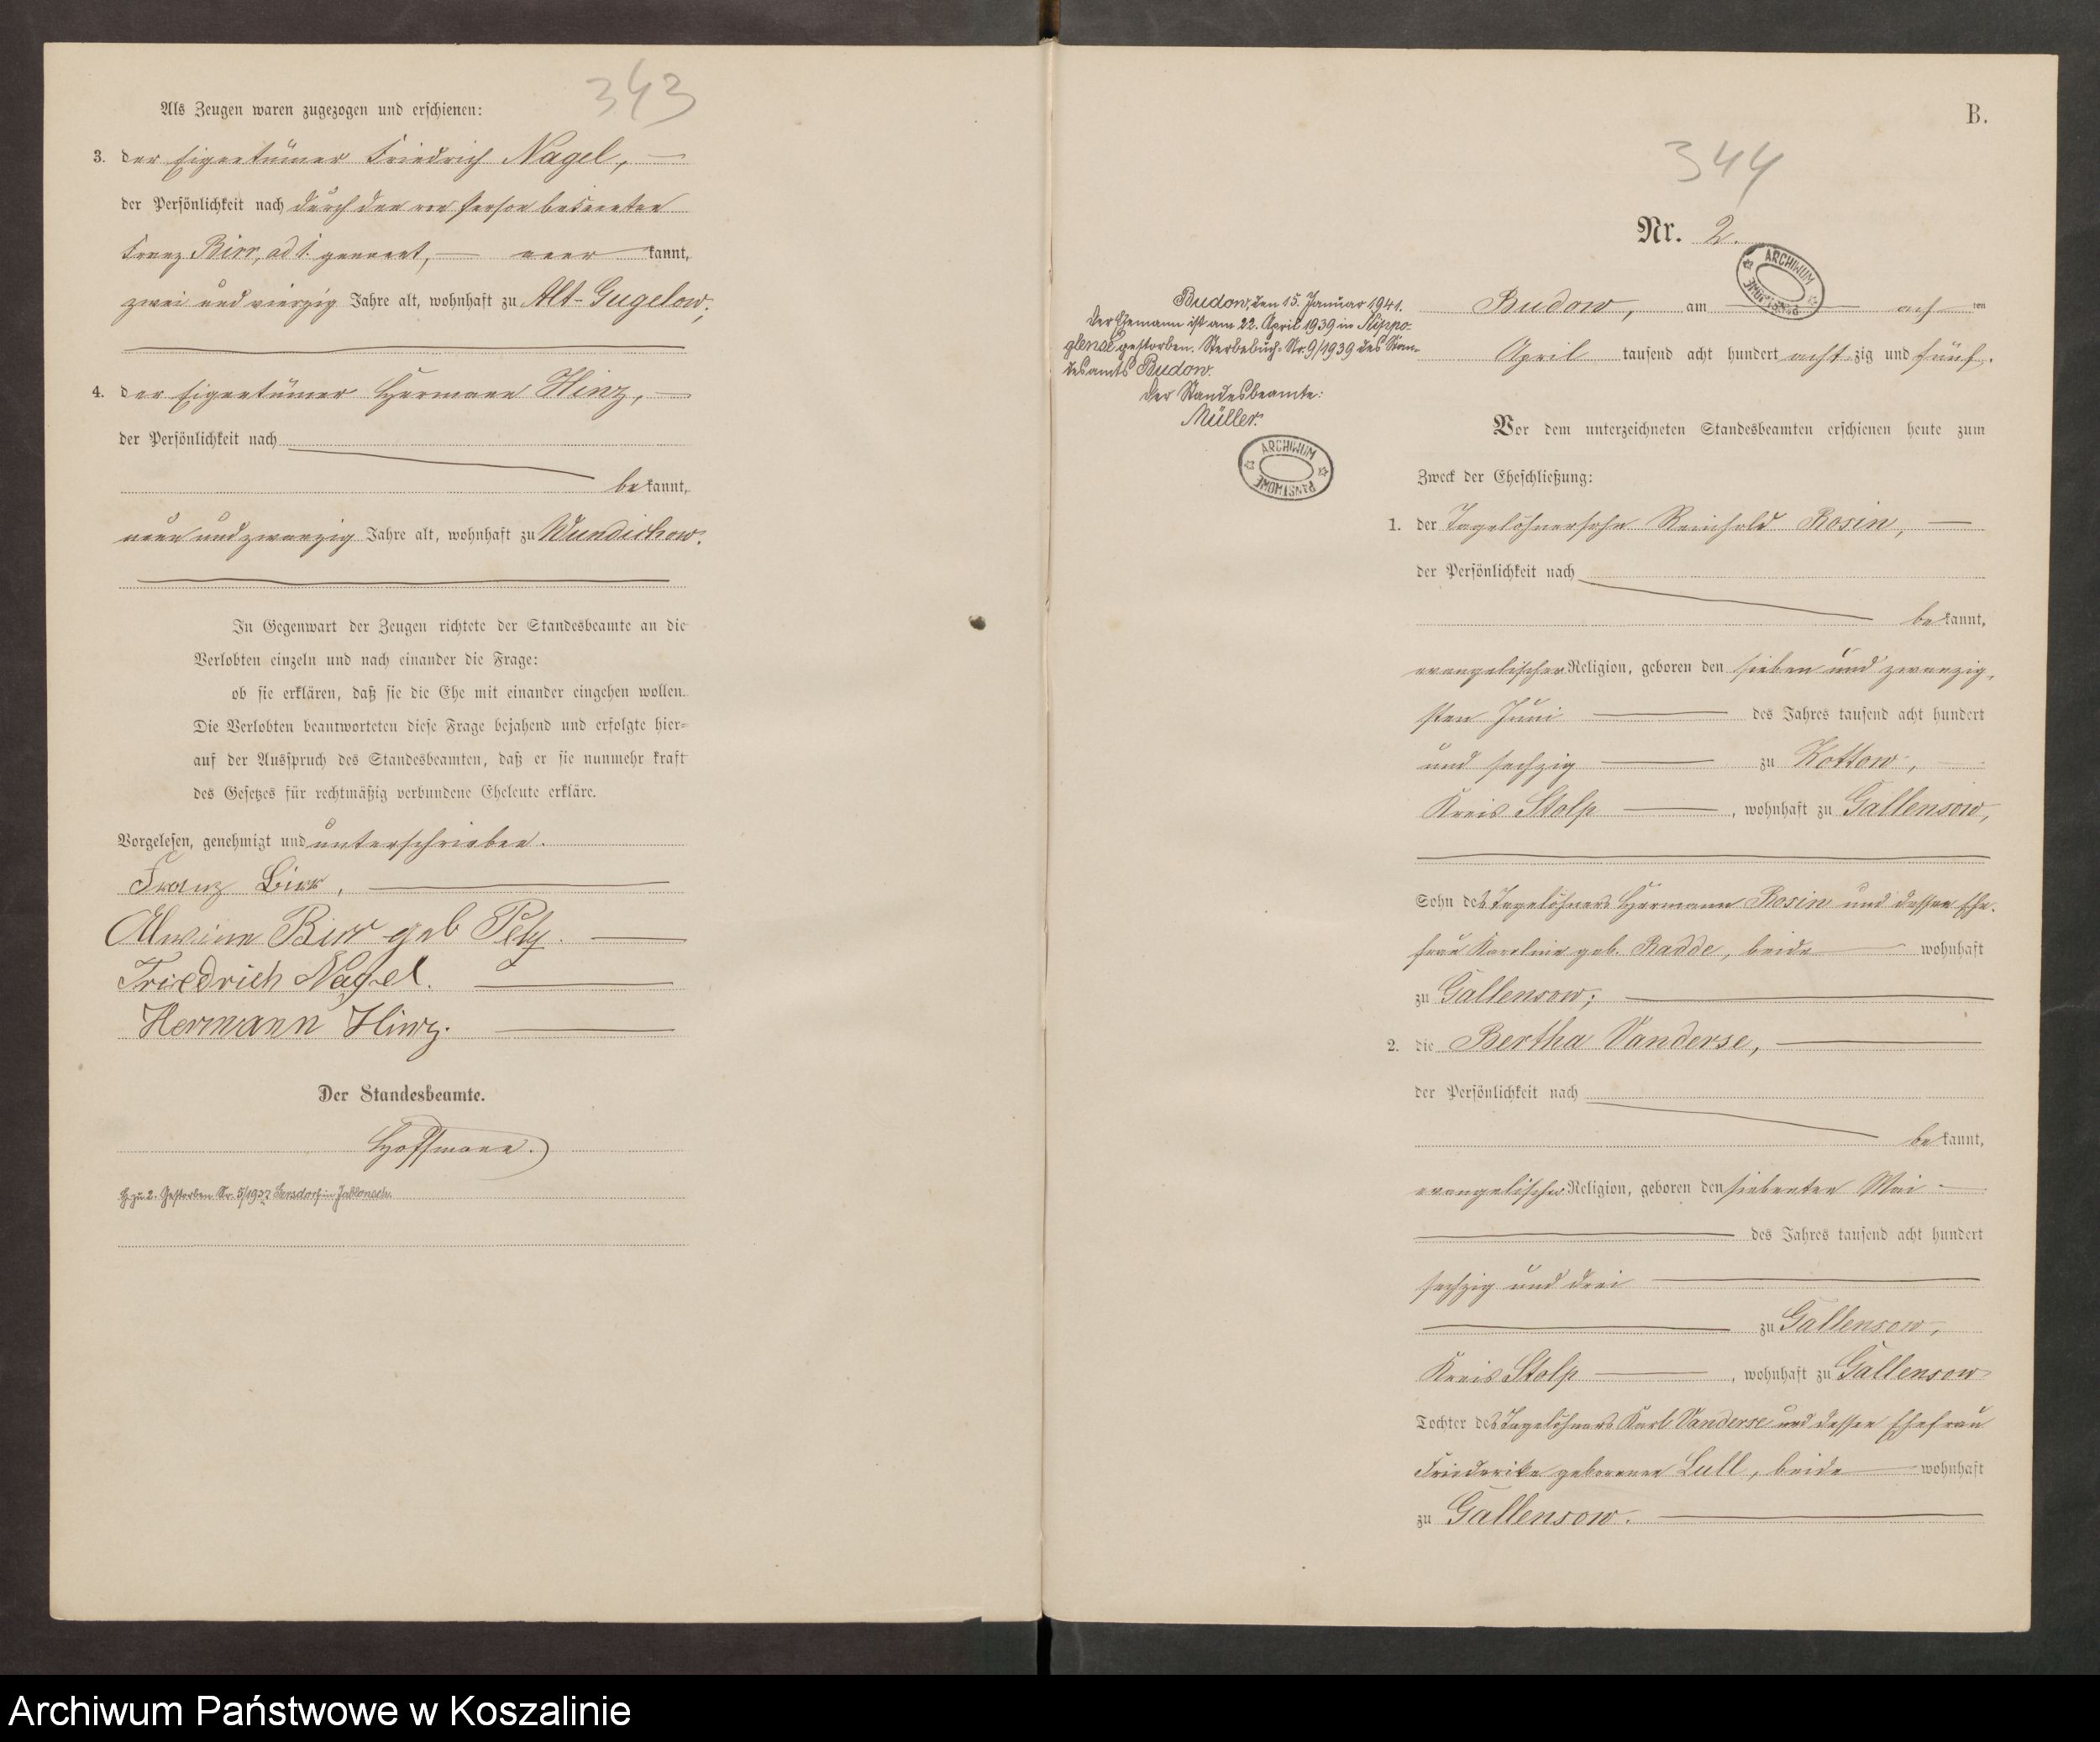 343
Als Zeugen waren zugezogen und erschienen:
3. der Eigentümer Friedrich Nagel,
der Persönlichkeit nach durch den von Person bekannten
Franz Birr, ad 1. genannt, aner kannt,
zwei und vierzig Jahre alt, wohnhaft zu Alt-Gugelow;
4. der Eigentümer Hermann Hinz,
der Persönlichkeit nach
be kannt,
neun und zwanzig Jahre alt, wohnhaft zu Wundichow.
In Gegenwart der Zeugen richtete der Standesbeamte an die
Verlobten einzeln und nach einander die Frage:
ob sie erklären, daß sie die Ehe mit einander eingehen wollen.
Die Verlobten beantworteten diese Frage bejahend und erfolgte hier=
auf der Ausspruch des Standesbeamten, daß er sie nunmehr kraft
des Gesetzes für rechtmäßig verbundene Eheleute erkläre.
Vorgelesen, genehmigt und unterschrieben.
Franz Birr,
Alwine Birr geb
Friedrich Nagel.
Hermann Hinz.
Der Standesbeamte.
Hoffmann.
zu 2. Gestorben Nr. in
B.
344
Nr. 2.
ARCHIWUM PAŃSTWOWE
Budow, am acht ten
April tausend acht hundert acht zig und fünf.
Budow, den 15. Januar 1941.
Der Ehemann ist am 22. April 1939 in Nippo-
glense gestorben. Sterbebuch Nr. 9/1939 des Stan-
desamts Budow.
Der Standesbeamte:
Müller.
ARCHIWUM PAŃSTWOWE
Vor dem unterzeichneten Standesbeamten erschienen heute zum
Zweck der Eheschließung:
1. der Tagelöhnersohn Reinhold Rosin,
der Persönlichkeit nach
be kannt,
evangelischer Religion, geboren den sieben und zwanzig-
sten Juni des Jahres tausend acht hundert
und sechzig zu Kottow,
Kreis Stolp, wohnhaft zu Gallensow,
Sohn des Tagelöhners Hermann Rosin und dessen Ehe-
frau Karoline geb. Radde, beide wohnhaft
zu Gallensow;
2. die Bertha Vanderse,
der Persönlichkeit nach
be kannt,
evangelischer Religion, geboren den siebenten Mai
des Jahres tausend acht hundert
sechzig und drei
zu Gallensow,
Kreis Stolp, wohnhaft zu Gallensow
Tochter des Tagelöhners Karl Vanderse und dessen Ehefrau
Friederike geborenen Lull, beide wohnhaft
zu Gallensow.
Archiwum Państwowe w Koszalinie